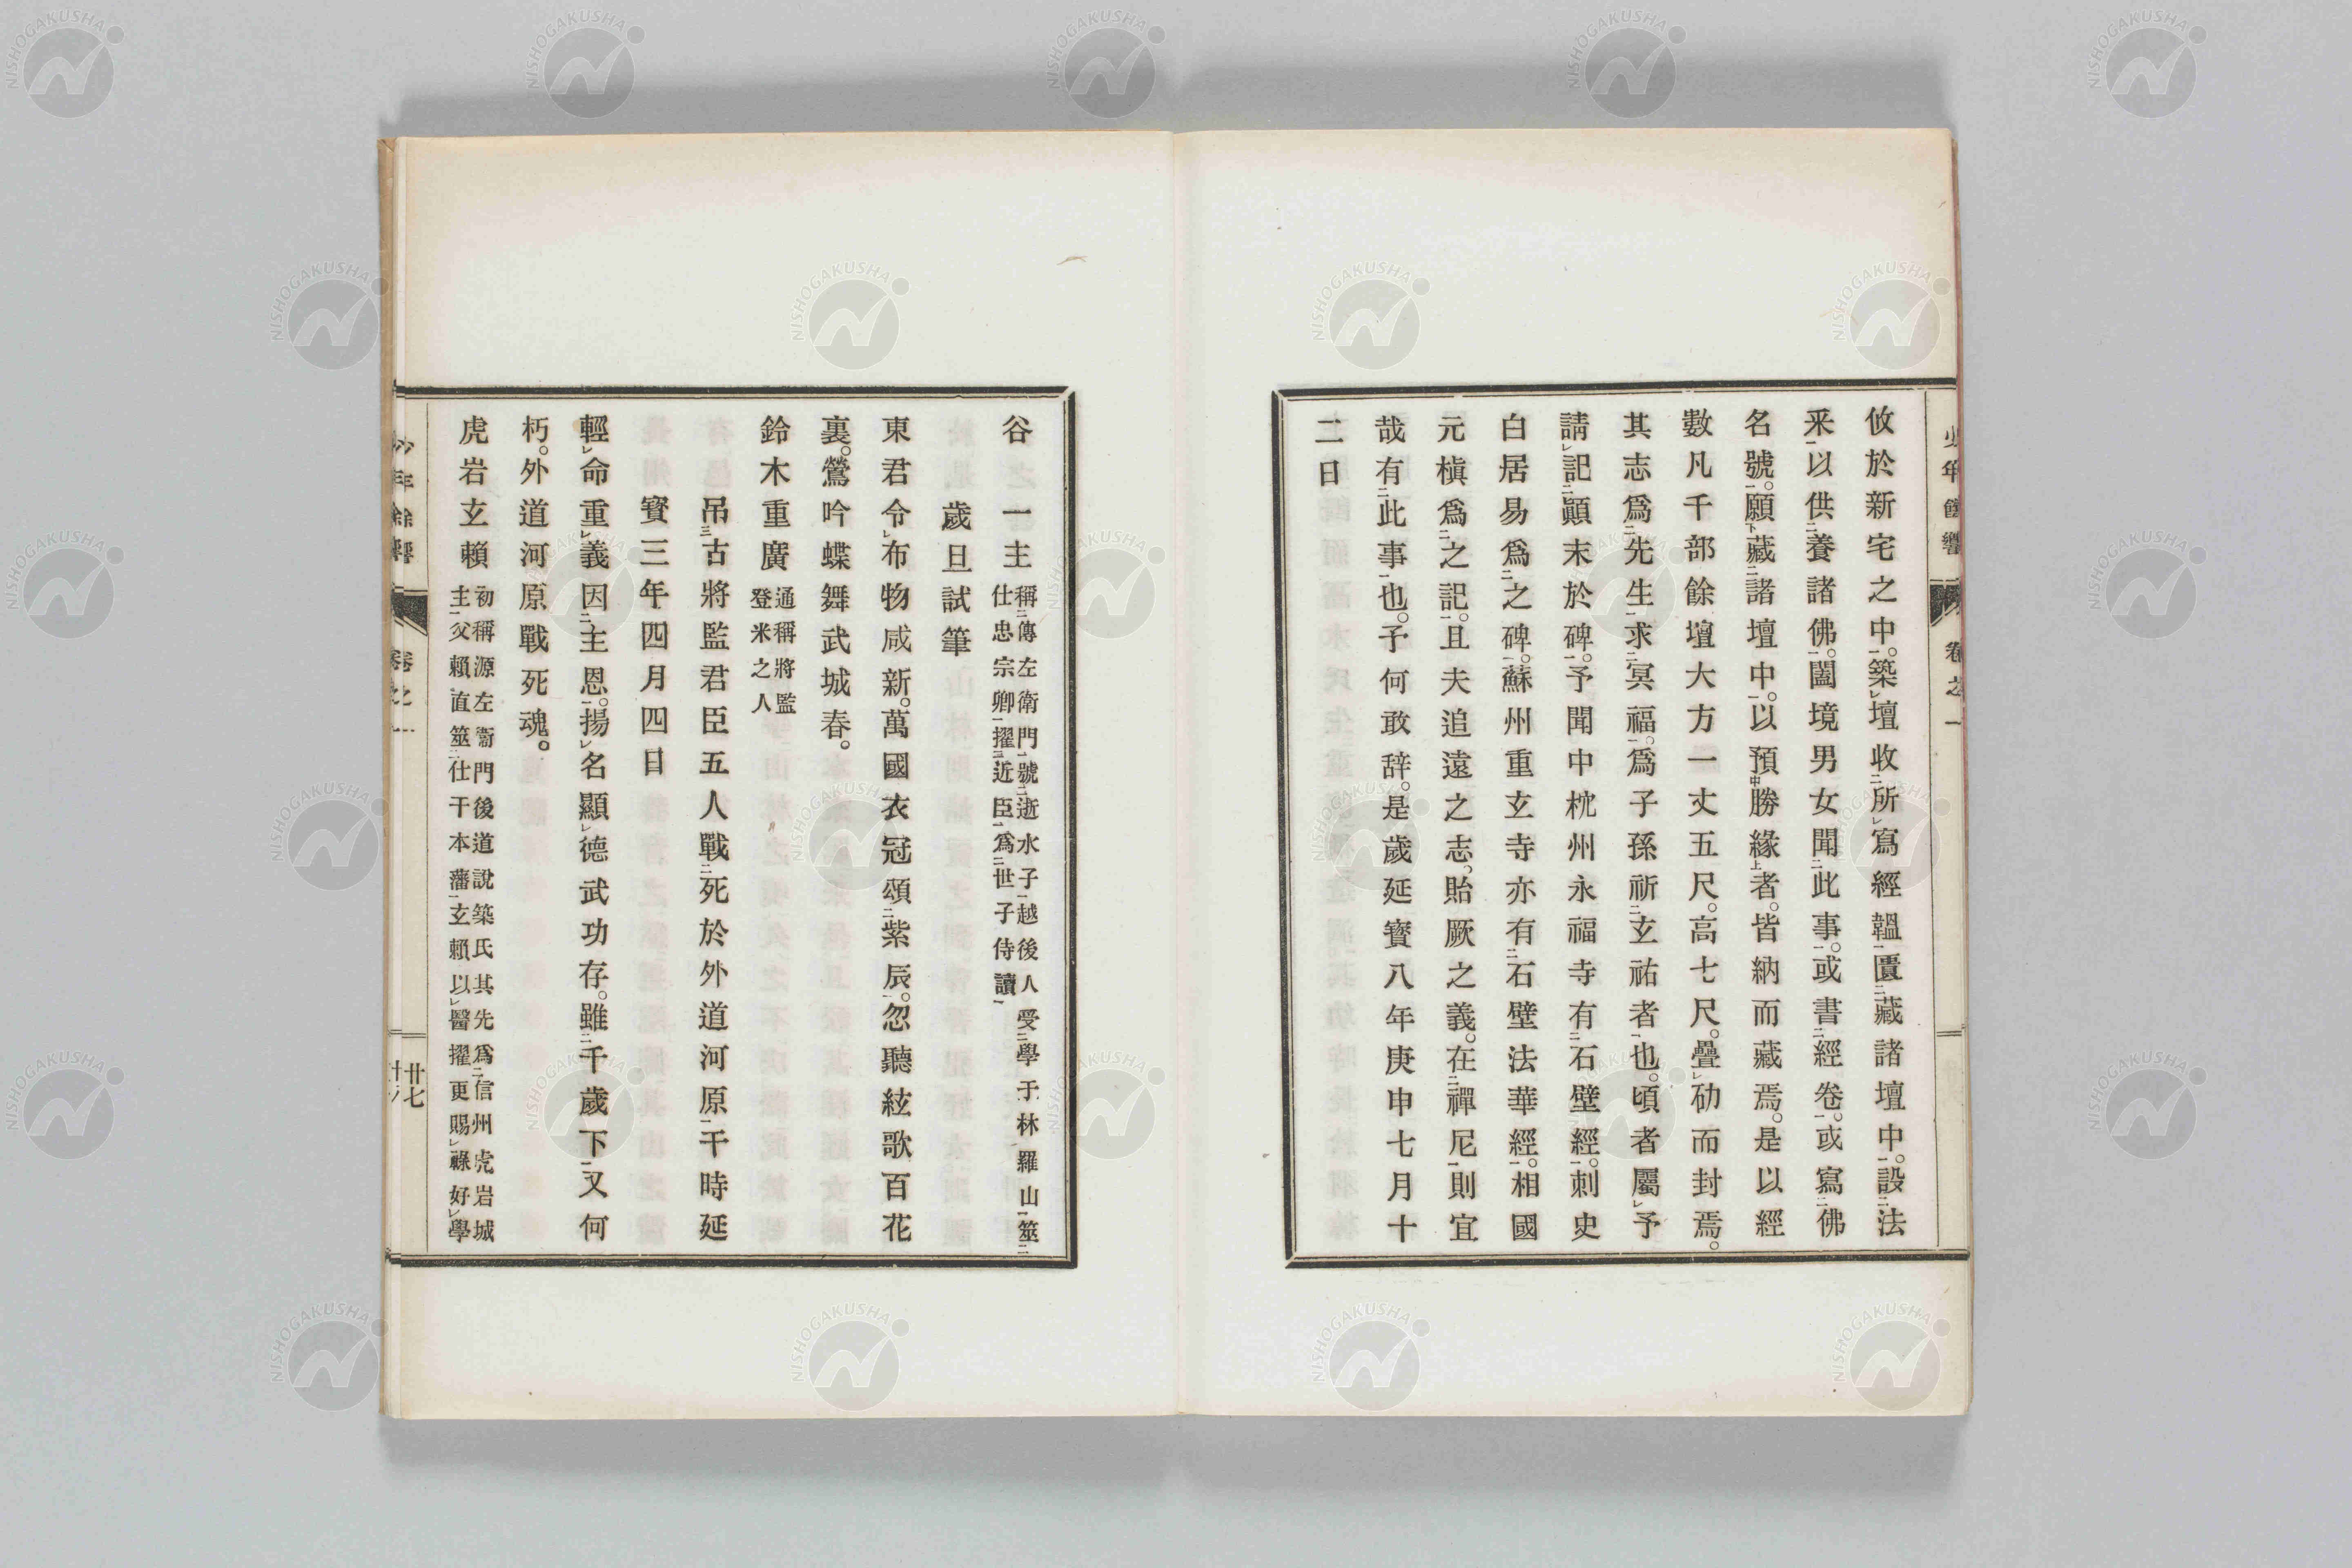 攸於新宅之中。築壇收所寫經韞匱藏諸壇中。設法
釆以供養諸佛。闔境男女聞此事。或書經卷。或寫佛
名號。願藏諸壇中。以預勝緣者。皆納而藏焉。是以經
數凡千部餘壇大方一丈五尺。高七尺。疊砌而封焉。
其志爲先生求冥福。爲子孫祈玄祐者也。頃者屬予
請記顚末於碑。予聞中枕州永福寺有石壁經。刺史
白居易爲之碑。蘇州重玄寺亦有石壁法華經。相國
元槇爲之記。且夫追遠之志。貽厥之義。在禪尼則宜
哉有此事也。予何敢辞。是歲延寶八年庚申七月十
二日
卷之一
谷一主 稱傳左衛門號逝水子越後人受學于林羅山筮
仕忠宗卿擢近臣爲世子侍讀
歲旦試筆
東君令布物咸新。萬國衣冠頌紫辰。忽聽絃歌百花
裏。鶯吟蝶舞武城春。
鈴木重廣 通稱將監
登米之人
吊古將監君臣五人戰死於外道河原于時延
寶三年四月四日
輕命重義因主恩。揚名顯德武功存。雖千歲下又何
朽。外道河原戰死魂。
虎岩玄賴 初稱源左衞門後道說築氏其先爲信州虎岩城
主父賴直筮仕于本藩玄賴以醫擢更賜祿好學
少年餘響
卷之一
廿七